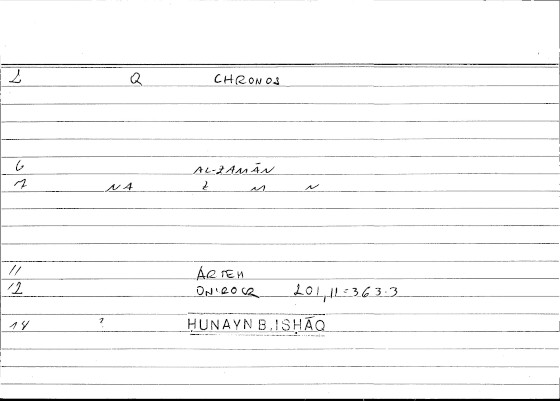 2 Q CHRONOS
6 AL-ZAMĀN
7 NA Z M N
11 ARTEM
12 ONIROCR 201,11=363.3
14 ? ḤUNAYN B. ISḤĀQ